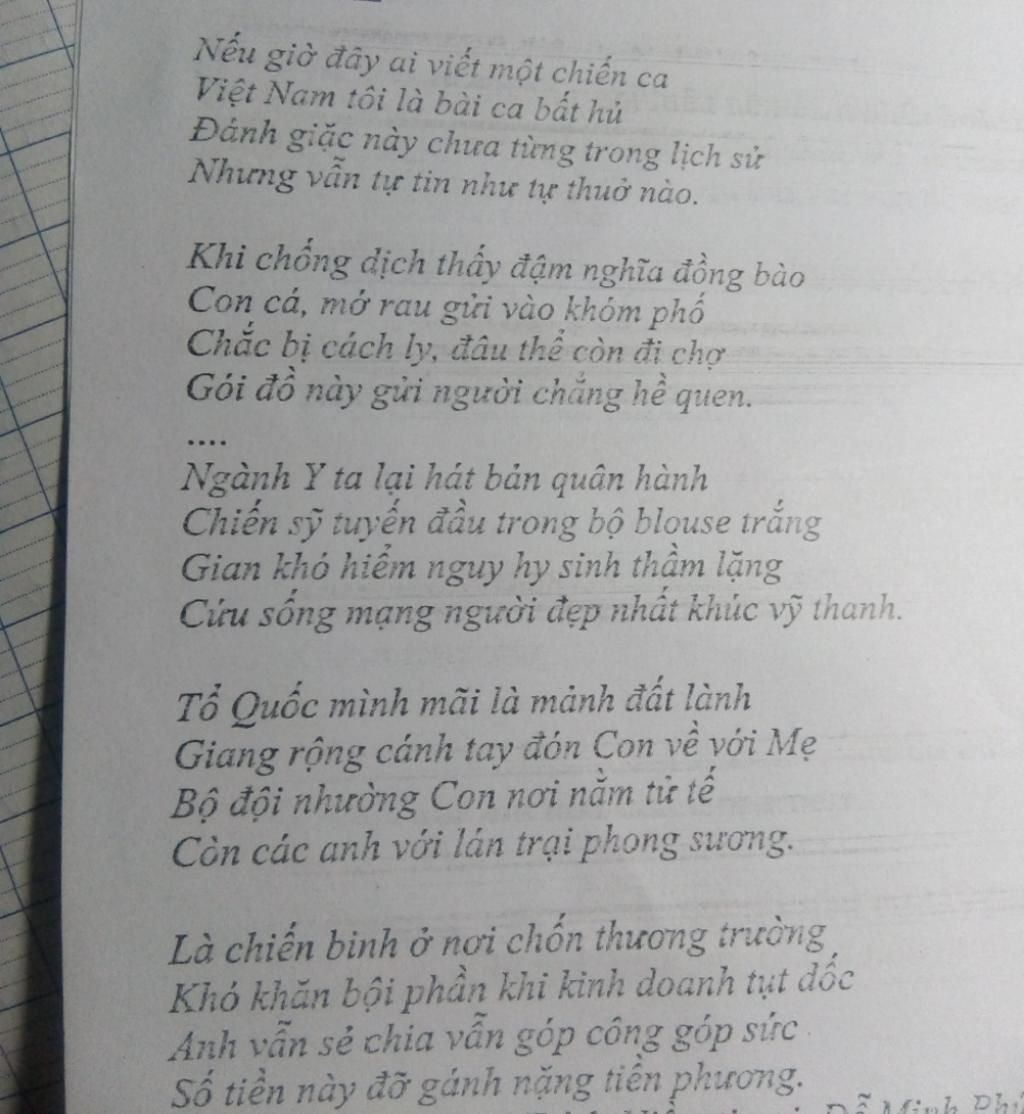 Nếu giờ đây ai viết một chiến ca
Việt Nam tôi là bài ca bất hủ
Đánh giặc này chưa từng trong lịch sử
Nhưng vẫn tự tin như tự thuở nào.
Khi chống dịch thấy đậm nghĩa đồng bào
Con cá, mớ rau gửi vào khóm phố
Chắc bị cách ly, đâu thể còn đi chợ
Gói đồ này gửi người chẳng hề quen.
....
Ngành Y ta lại hát bản quân hành
Chiến sỹ tuyến đầu trong bộ blouse trắng
Gian khó hiểm nguy hy sinh thầm lặng
Cứu sống mạng người đẹp nhất khúc vỹ thanh.
Tổ Quốc mình mãi là mảnh đất lành
Giang rộng cánh tay đón Con về với Mẹ
Bộ đội nhường Con nơi nằm tử tế
Còn các anh với lán trại phong sương.
Là chiến binh ở nơi chốn thương trường
Khó khăn bội phần khi kinh doanh tụt dốc
Anh vẫn sẻ chia vẫn góp công góp sức
Số tiền này đỡ gánh nặng tiền phương.
Đỗ Minh